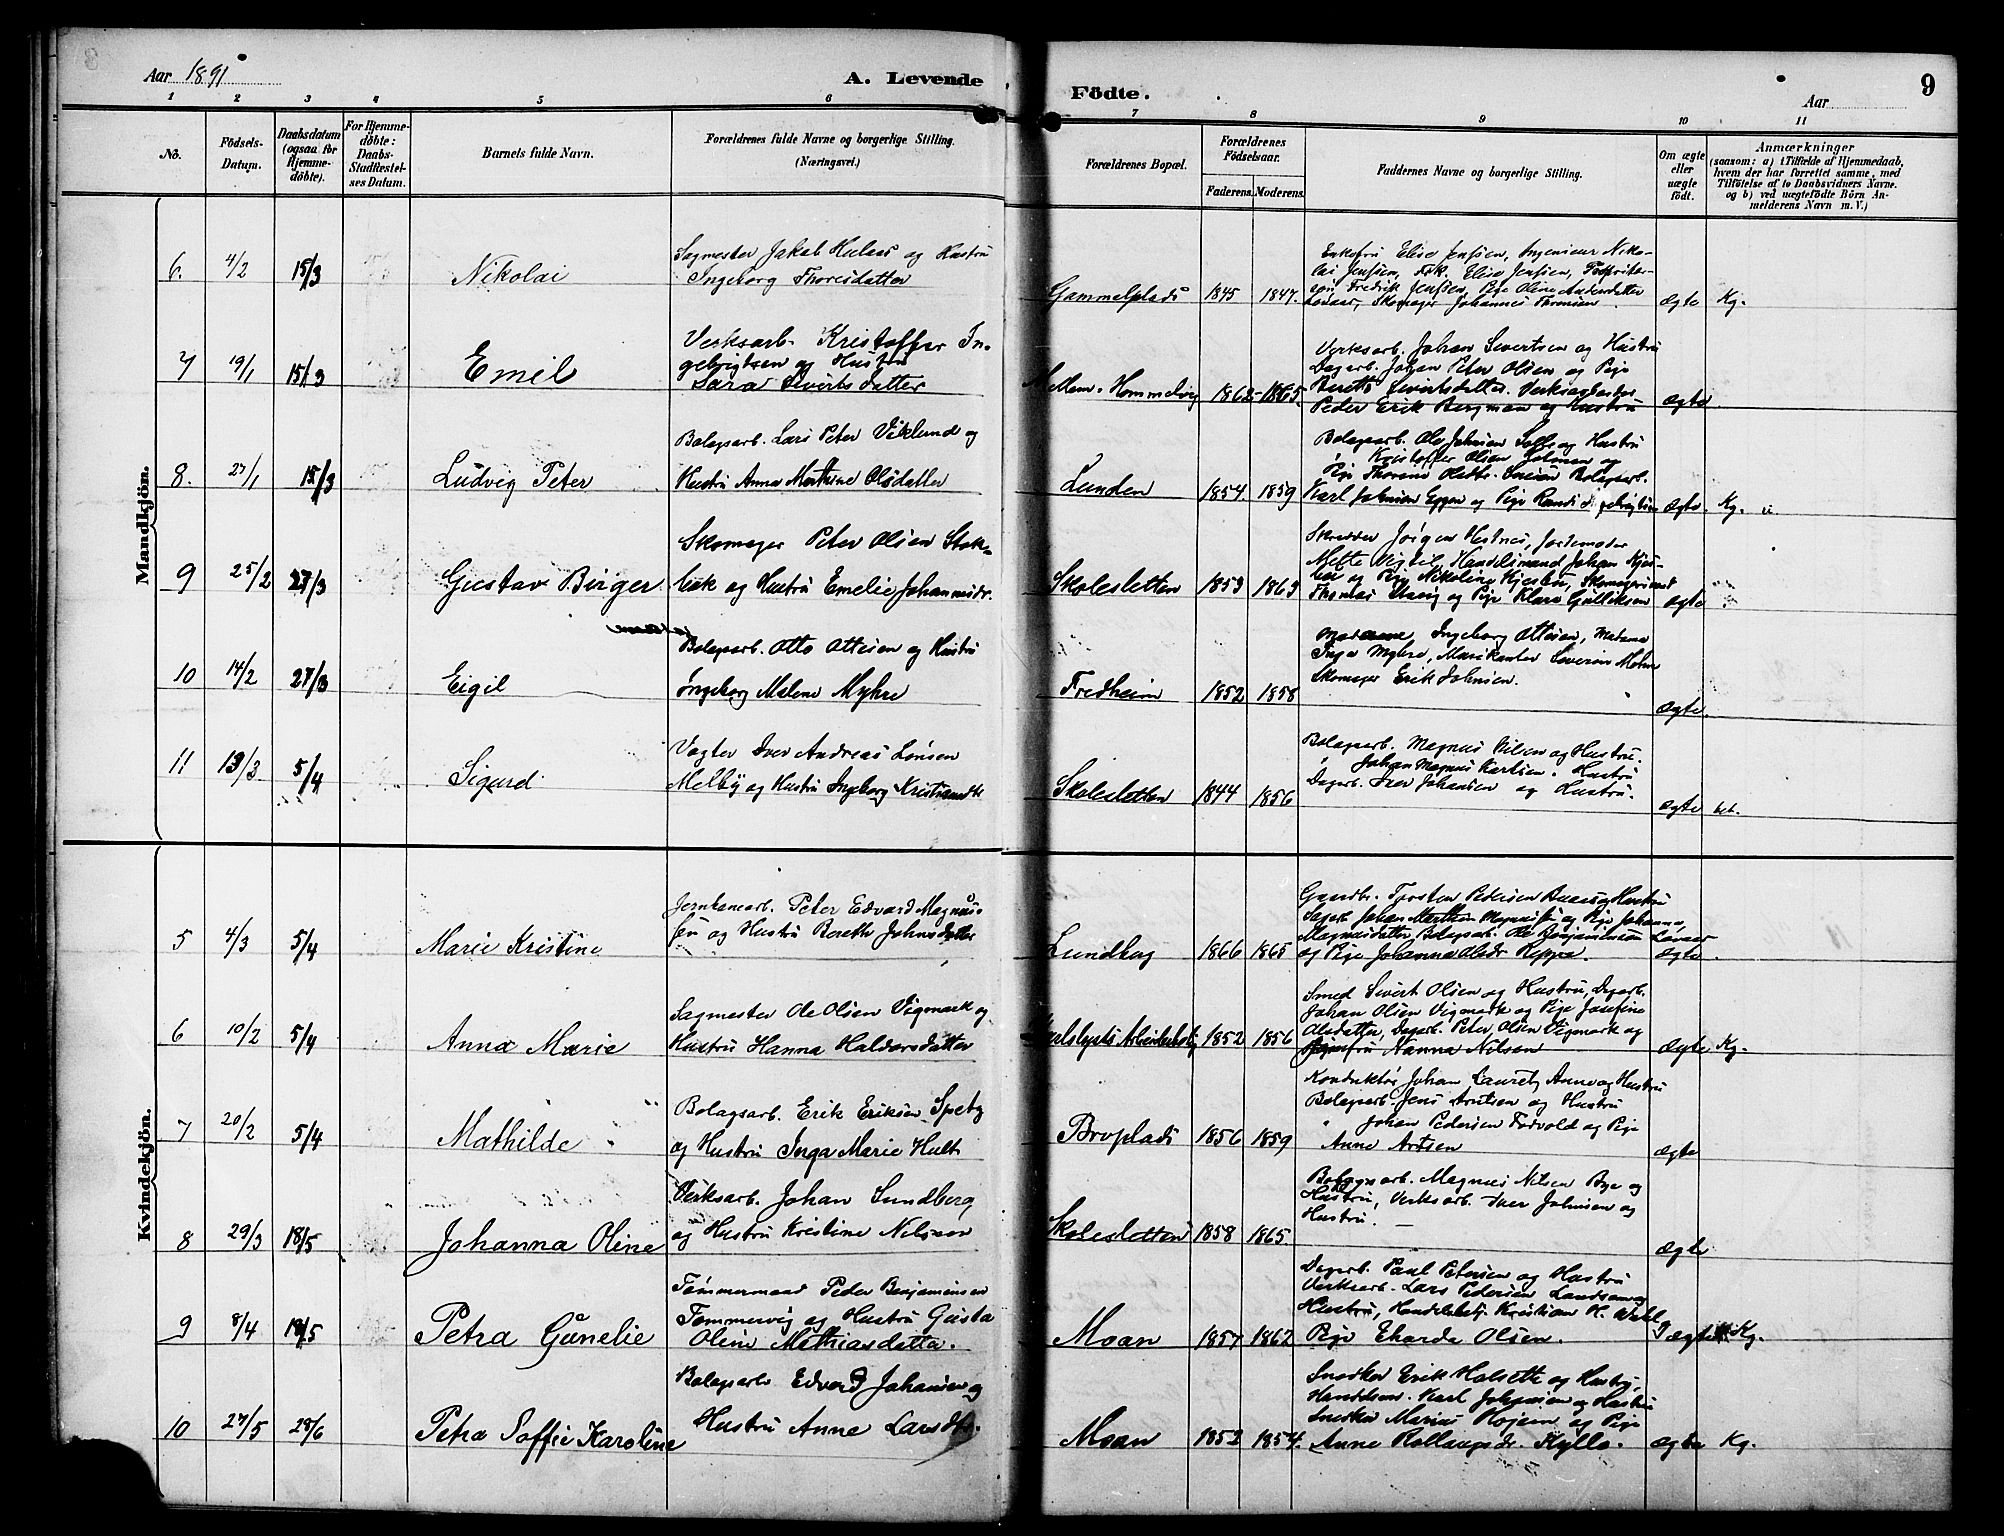 Aar 1891
A. Levende
Födte.
Aar
9
1 2 3 4 5 6 7 8 9 10 11
No.
Födsels-
Datum.
Daabsdatum
(ogsaa for
Hjemme-
döbte).
For Hjemme-
döbte:
Daabs-
Stadfæstel-
ses Datum.
Barnets fulde Navn.
Forældrenes fulde Navne og borgerlige Stilling.
(Næringsvei.)
Forældrenes Bopæl.
Forældrenes
Födselsaar.
Faderens. Moderens.
Faddernes Navne og borgerlige Stilling.
Om ægte
eller
uægte
födt.
Anmærkninger
(saasom: a) i Tilfælde af Hjemmedaab,
hvem der har forrettet samme, med
Tilföielse af to Daabsvidners Navne.
og b) ved uægtefödte Börn An-
melderens Navn m. V.)
Mandkjön.
6. 4/2 15/3 Nikolai
Sagmester Jakob Hulaas og Hustru
Ingeborg Thoresdatter
Gammelplads 1845 1847.
Enkefru Elise Jenssen, Ingeniør Niko-
lai Jenssen, Frk. Elise Jenssen,
Fredrik Jenssen, Pige Oline Andersdatter
Skomager Johannes Thomsen
ægte Kg.
7 19/1 15/3 Emil
Verksarb. Kristoffer In-
gebrigtsen og Hustru
Sara Sivertsdatter
Mellem-Hommelvig 1862 1865.
Verksarb. Johan Sivertsen og Hustru
Dagarb. Johan Peter Olsen og Pige
Beretta Sivertsdatter. Verksarbeider
Peder Erik Bergman og Hustru
ægte
8. 27/1 15/3 Ludvig Peter
Bolagsarb. Lars Peter Viklund og
Hustru Anna Mathine Olsdatter
Lunden 1854. 1859
Bolagsarb. Ole Johnsen og Hustru
Kristoffer Olsen og
Pige Thorine Bolagsarb.
Karl Johnsen Eggen og Pige Randi
ægte. Kg.
9 25/2 27/3 Gustav Birger
Skomager Peter Olsen Stok-
bæk og Hustru Emelie Johannesdr.
Skolesletten 1853 1863
Skrædder Jørgen Hestnes, Jordemoder
Mette Handelsmand Johan
og Pige Nikoline
Thomas og Pige Klara Gulliksen
ægte
10 14/2 27/3 Eigil
Bolagsarb. Otto Ottesen og Hustru
Ingeborg Malene Myhre
Fredheim 1852 1858
Madame Ingeborg Ottesen, Madame
Inga Myhre, Musikanter Severin Moen
Skomager Erik Johnsen.
ægte.
11 13/3 5/4 Sigurd
Vagter Iver Andreas Larsen
Melby og Hustru Ingeborg
Skolesletten 1844 1856
Bolagsarb. Magnus Nilsen og Hustru.
" Johan Magnus Karlsen. Hustru
Dagarb. Iver Johansen og Hustru.
ægte
Kvindekjön.
5 4/3 5/4 Marie Kristine
Jernbanearb. Peter Edvard Magnus-
sen og Hustru Bereth Johnsdatter
Lundhag 1866 1865
Gaardbr. Torsten Pedersen og Hustru
Sagarb. Johan Marthin Magnussen og Pige Johanna
Magnusdatter Bolagsarb. Ole Benjaminsen
og Pige Johanna Olsdr. Reppe.
ægte
6 10/2 5/4 Anna Marie
Sagmester Ole Olsen Vigmark og
Hustru Hanna Haldorsdatter
Karlslysts Arbeiderbolig 1852 1856
Smed Sivert Olsen og Hustru, Dagarb.
Johan Olsen Vigmark og Pige Josefine
Olsdatter, Dagarb. Peter Olsen Vigmark og
Nanna Nilsen
ægte Kg.
7 20/2 5/4 Mathilde
Bolagsarb. Erik Eriksen Spetz
og Hustru Inga Marie Hult
Broplads 1856 1859
Konduktør Johan Lauretz Anne og Hustru
Bolagsarb. Jens Arntsen og Hustru
" Johan Pedersen og Pige
Anne Arntsen
ægte
8 29/3 18/5 Johanna Oline
Verksarb. Johan Sundberg
og Hustru Kristine Nilsson
Skolesletten 1858 1865.
Bolagsarb. Magnus Nilsen Bye og
Hustru, Verksarb. Iver Johnsen og
Hustru.
ægte
9 8/4 18/5 Petra Gunelie
Tømmermand Peder Benjaminsen
Tømmervig og Hustru Gusta
Oline Mathiasdatter.
Moan 1857 1862
Dagarb. Paul Petersen og Hustru
Verksarb. Lars Pedersen og
Hustru, Kristian H. Wahl
Pige Eharda Olsen.
ægte Kg.
10 27/5 28/6 Petra Soffie Karoline
Bolagsarb. Edvard Johansen og
Hustru Anne Larsdtr.
Moan 1852 1854.
Snedker Erik Halseth og Hustru,
Karl Johnsen og Hustru
Snedker Marius Hojem og Pige
Anne Rollaugsdr. Kyllo.
ægte Kg.